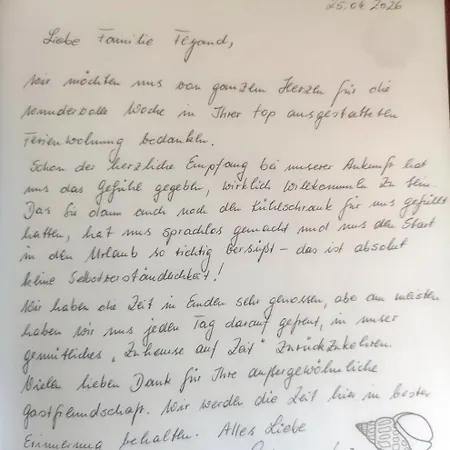 25.04.2026
Liebe Familie Fegand,
wir möchten uns von ganzem Herzen für die
wundervolle Woche in Ihrer top ausgestatteten
Ferienwohnung bedanken.
Schon der herzliche Empfang bei unserer Ankunft hat
uns das Gefühl gegeben, wirklich willkommen zu sein.
Das Sie dann auch noch den Kühlschrank für uns gefüllt
hatten, hat uns sprachlos gemacht und uns den Start
in den Urlaub so richtig versüßt – das ist absolut
keine Selbstverständlichkeit!
Wir haben die Zeit in Emden sehr genossen, abe am meisten
haben wir uns jeden Tag darauf gefreut, in unser
gemütliches „Zuhause auf Zeit" zurückzukehren.
Vielen lieben Dank für Ihre außergewöhnliche
Gastfreundschaft. Wir werden die Zeit hier in bester
Erinnerung behalten. Alles Liebe